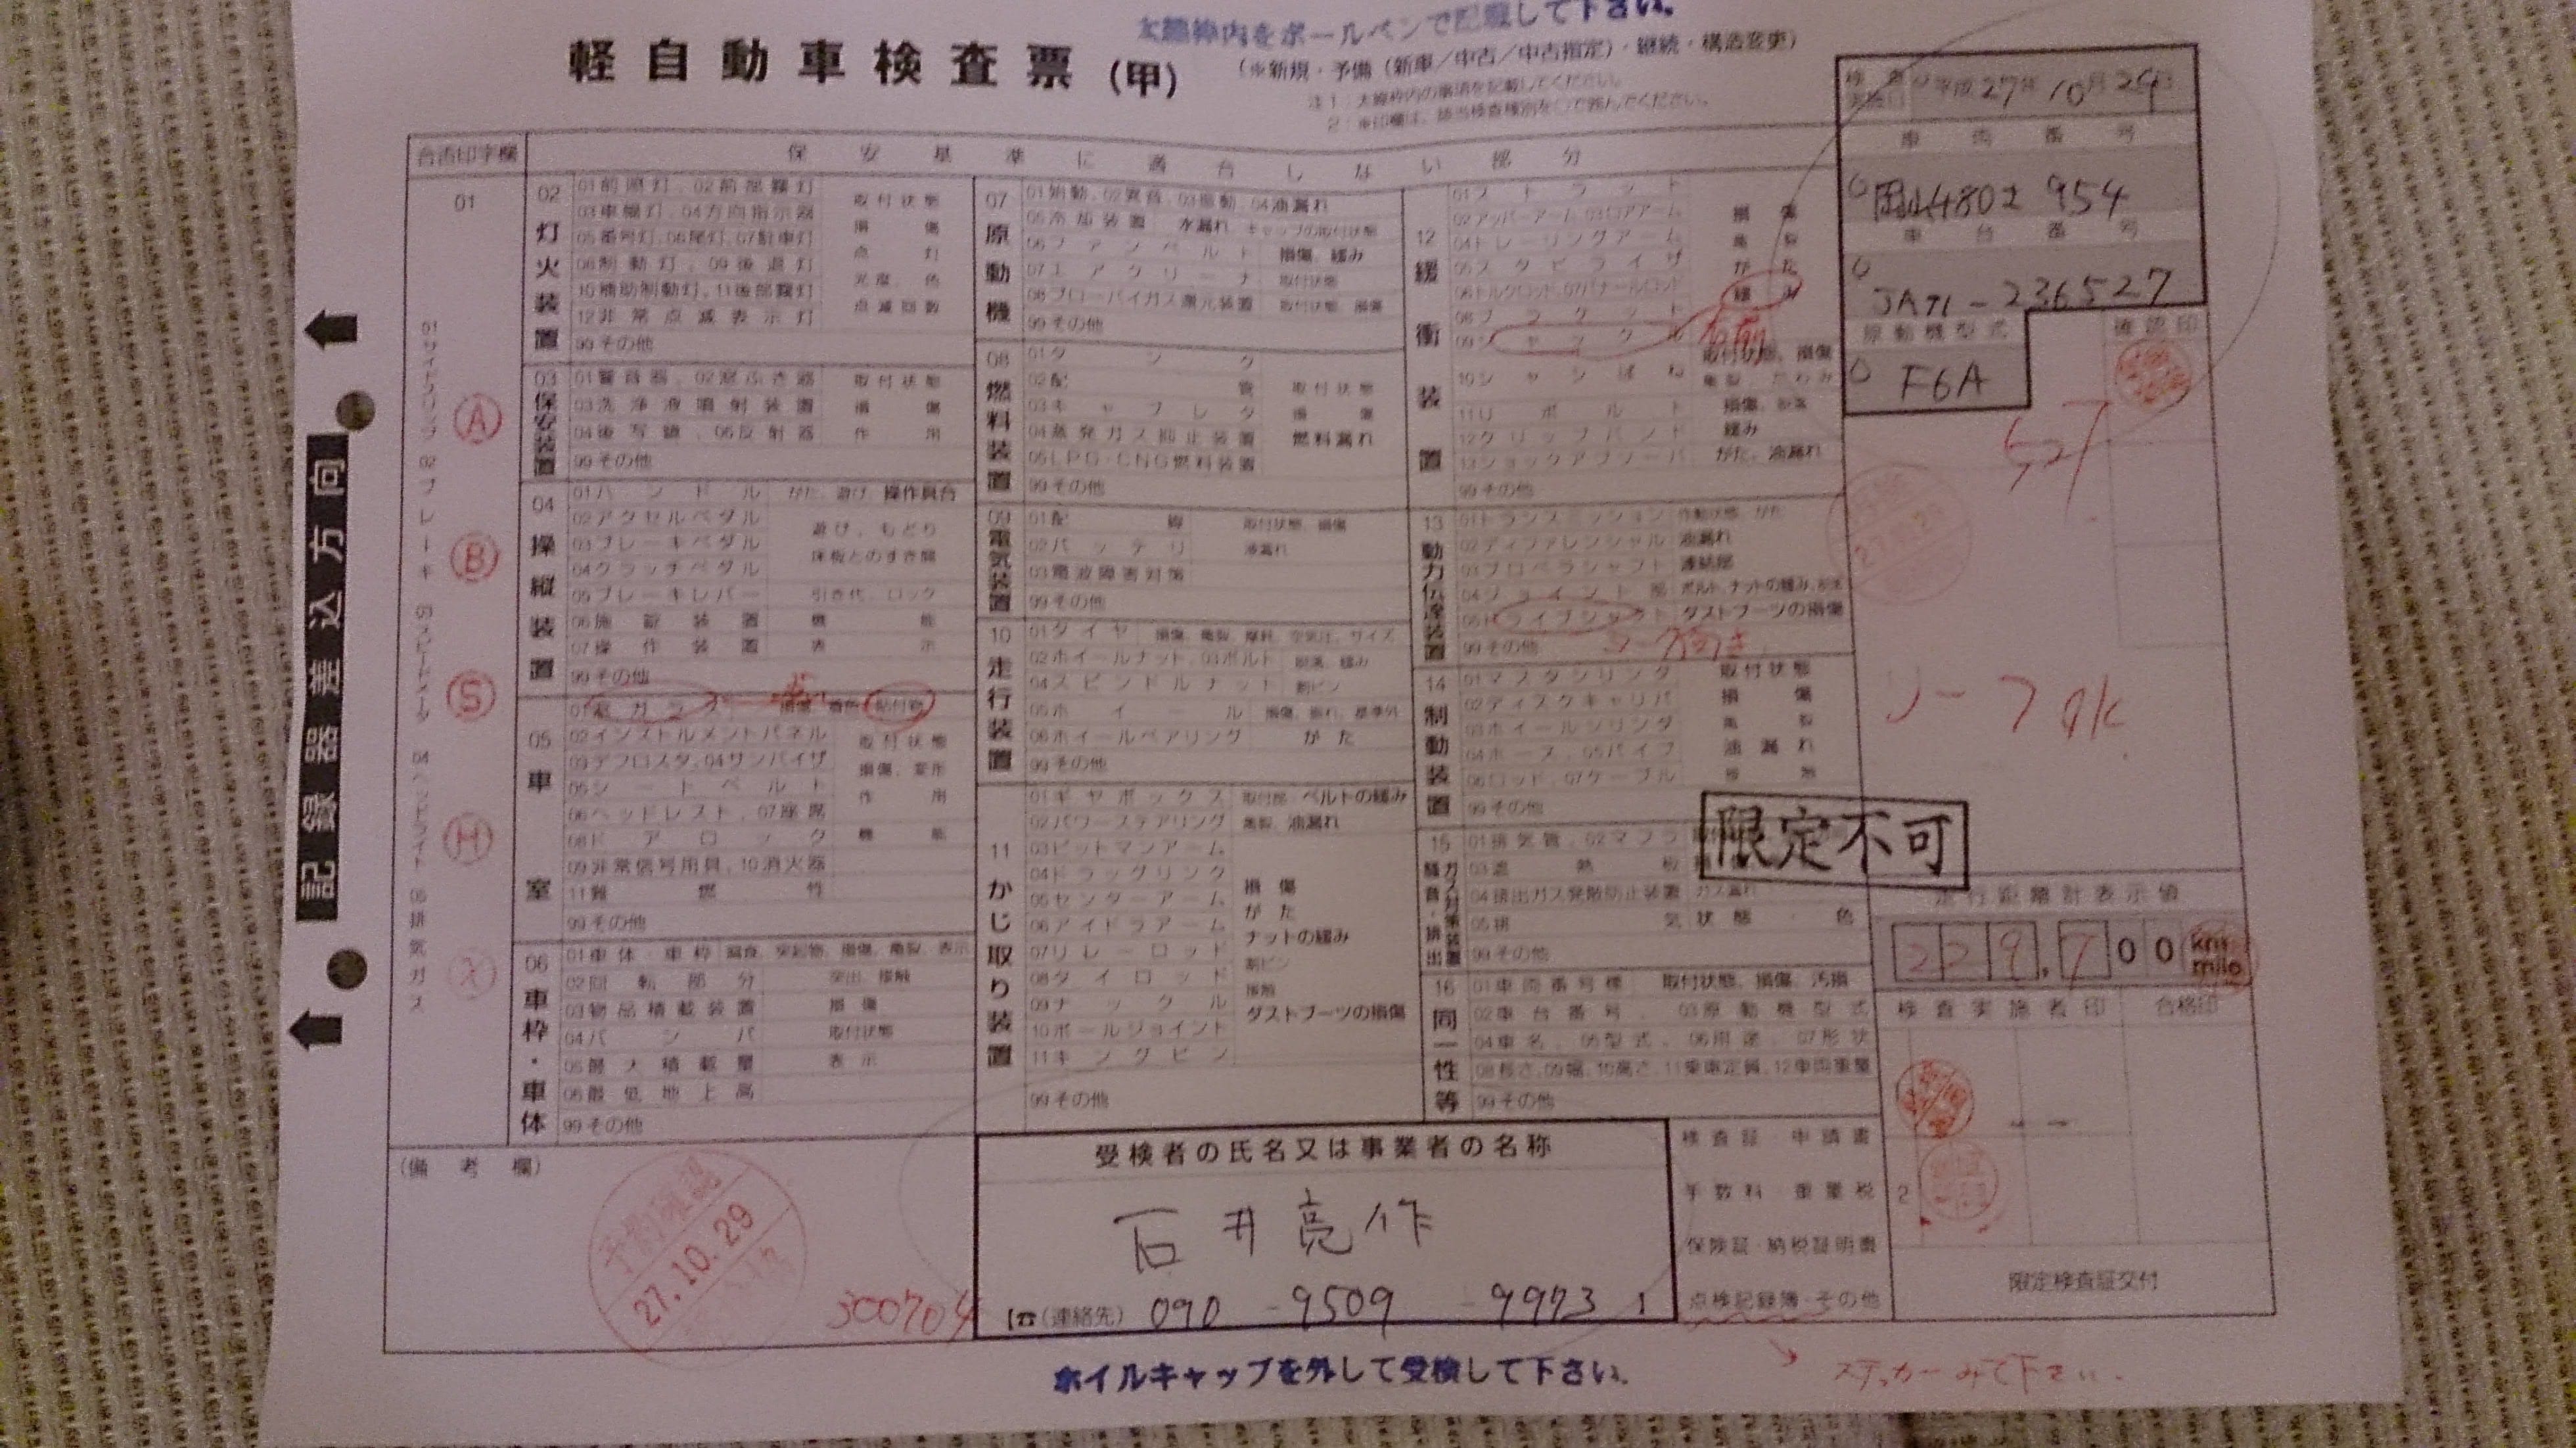 太線枠内をボールペンで記載して下さい。
軽自動車検査票(甲)
(※新規・予備(新車/中古/中古指定)・継続・構造変更)
注1:太線枠内の事項を記載してください。
2:※印欄は、該当検査種別を○で囲んでください。
検査実施日 平成27年10月29日
車両番号
岡山480 954
車台番号
JA71-236527
原動機型式
F6A
確認印
合否印字欄
保安基準に適合しない部分
01
01サイドスリップ 02ブレーキ 03スピードメータ 04ヘッドライト 05排気ガス
A
B
S
H
X
記録器差込方向
02 灯火装置
01前照灯、02前部霧灯 取付状態
03車幅灯、04方向指示器 損傷
05番号灯、06尾灯、07駐車灯 点灯
08制動灯、09後退灯 光度、色
10補助制動灯、11後部霧灯 点滅回数
12非常点滅表示灯
99その他
03 保安装置
01警音器、02窓ふき器 取付状態
03洗浄液噴射装置 損傷
04後写鏡、05反射器 作用
99その他
04 操縦装置
01ハンドル がた、遊び、操作具合
02アクセルペダル 遊び、もどり
03ブレーキペダル 床板とのすき間
04クラッチペダル
05ブレーキレバー 引き代、ロック
06施錠装置 機能
07操作装置 表示
99その他
05 車室
01窓ガラス 損傷、着色、貼付物
02インストルメントパネル 取付状態
03デフロスタ、04サンバイザ 損傷、変形
05シートベルト 作用
06ヘッドレスト、07座席
08ドアロック 機能
09非常信号用具、10消火器
11難燃性
99その他
06 車枠・車体
01車体・車枠 腐食、突起物、損傷、亀裂、表示
02回転部分 突出、接触
03物品積載装置 損傷
04バンパ 取付状態
05最大積載量 表示
06最低地上高
99その他
07 原動機
01始動、02異音、03振動、04油漏れ
05冷却装置 水漏れ、キャップの取付状態
06ファンベルト 損傷、緩み
07エアクリーナ 取付状態
08ブローバイガス還元装置 取付状態、損傷
99その他
08 燃料装置
01タンク
02配管 取付状態
03キャブレタ 損傷
04蒸発ガス抑止装置 燃料漏れ
05LPG・CNG燃料装置
99その他
09 電気装置
01配線 取付状態、損傷
02バッテリ 液漏れ
03電波障害対策
99その他
10 走行装置
01タイヤ 損傷、亀裂、摩耗、空気圧、サイズ
02ホイールナット、03ボルト 脱落、緩み
04スピンドルナット 割ピン
05ホイール 損傷、振れ、基準外
06ホイールベアリング がた
99その他
11 かじ取り装置
01ギヤボックス 取付部、ベルトの緩み
02パワーステアリング 亀裂、油漏れ
03ピットマンアーム
04ドラッグリンク 損傷
05センターアーム がた
06アイドラアーム ナットの緩み
07リレーロッド 割ピン
08タイロッド 接触
09ナックル ダストブーツの損傷
10ボールジョイント
11キングピン
99その他
12 緩衝装置
01ストラット
02アッパーアーム、03ロアアーム 損傷
04トレーリングアーム 亀裂
05スタビライザ がた
06トルクロッド、07パナールロッド 緩み
08ブラケット
09シャックル 右前
取付状態、損傷
10シャシばね 亀裂、たわみ
11Uボルト 損傷、脱落
12クリップバンド 緩み
13ショックアブソーバ がた、油漏れ
99その他
13 動力伝達装置
01トランスミッション 作動状態、がた
02ディファレンシャル 油漏れ
03プロペラシャフト 連結部
04ジョイント部 ボルト、ナットの緩み、脱落
05ドライブシャフト ダストブーツの損傷
99その他
14 制動装置
01マスタシリンダ 取付状態
02ディスクキャリパ 損傷
03ホイールシリンダ 亀裂
04ホース、05パイプ 油漏れ
06ロッド、07ケーブル 接触
99その他
リーフOK
限定不可
15 騒音対策・排出ガス装置
01排気管、02マフラ
03遮熱板
04排出ガス発散防止装置 ガス漏れ
05排気状態・色
99その他
16 同一性等
01車両番号標 取付状態、損傷、汚損
02車台番号、03原動機型式
04車名、05型式、06用途、07形状
08長さ、09幅、10高さ、11乗車定員、12車両重量
99その他
走行距離計表示値
229,700 km mile
検査実施者印 合格印
2
限定検査証交付
(備考欄)
予備確認
27.10.29
300704
受検者の氏名又は事業者の名称
石井亮作
☎(連絡先) 090-9509-9973
検査証 申請書
手数料・重量税
保険証・納税証明書
点検記録簿・その他
ステッカーみて下さい.
ホイルキャップを外して受検して下さい.